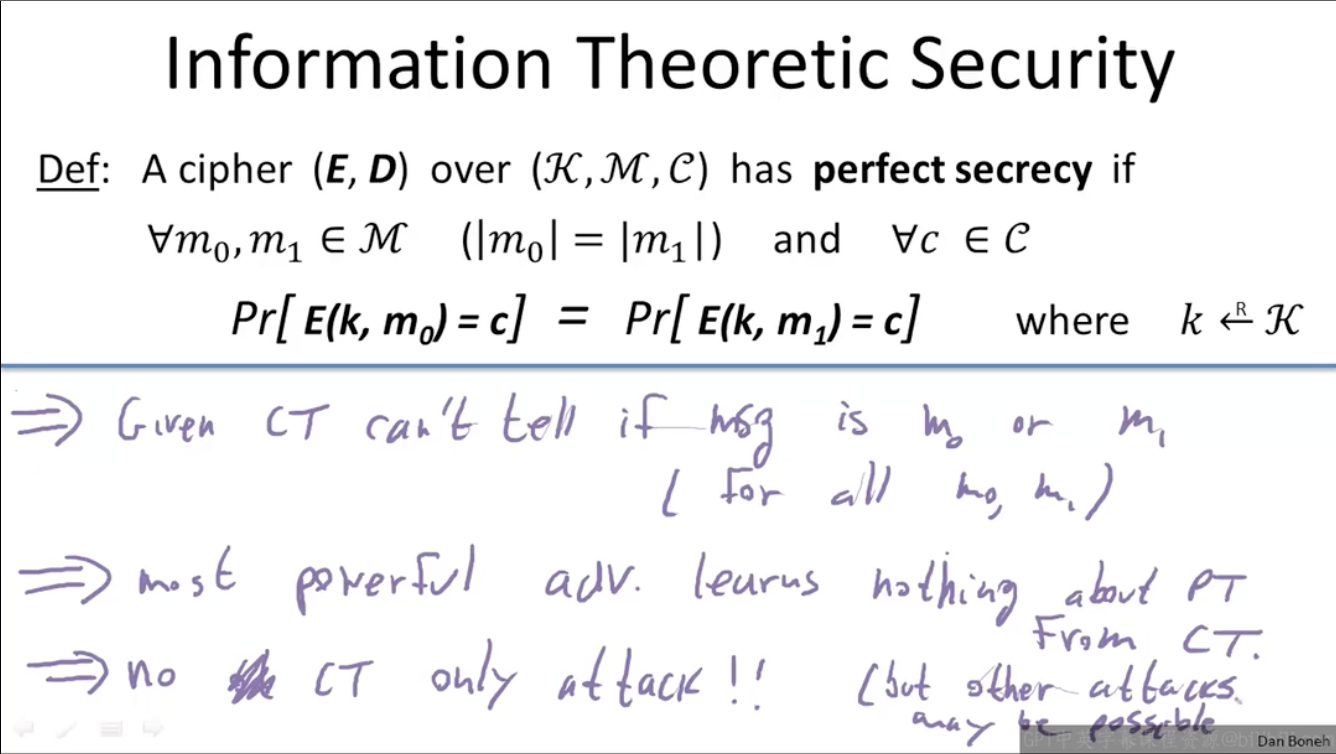 Information Theoretic Security
Def: A cipher (E, D) over (𝒦, ℳ, 𝒞) has perfect secrecy if
∀m₀, m₁ ∈ ℳ (|m₀| = |m₁|) and ∀c ∈ 𝒞
Pr[ E(k, m₀) = c] = Pr[ E(k, m₁) = c] where k ←ᴿ 𝒦
⇒ Given CT can't tell if msg is m₀ or m₁
( for all m₀, m₁ )
⇒ most powerful adv. learns nothing about PT
From CT.
⇒ no CT only attack!! (but other attacks.
may be possible
Dan Boneh